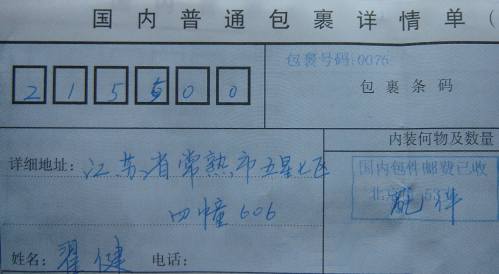 国内普通包裹详情单(
包裹号码:0076
2 1 5 5 0 0
包裹条码
内装何物及数量
详细地址: 江苏省常熟市五星七区
国内包件邮费已收
四幢606
北京
姓名: 翟健 电话: